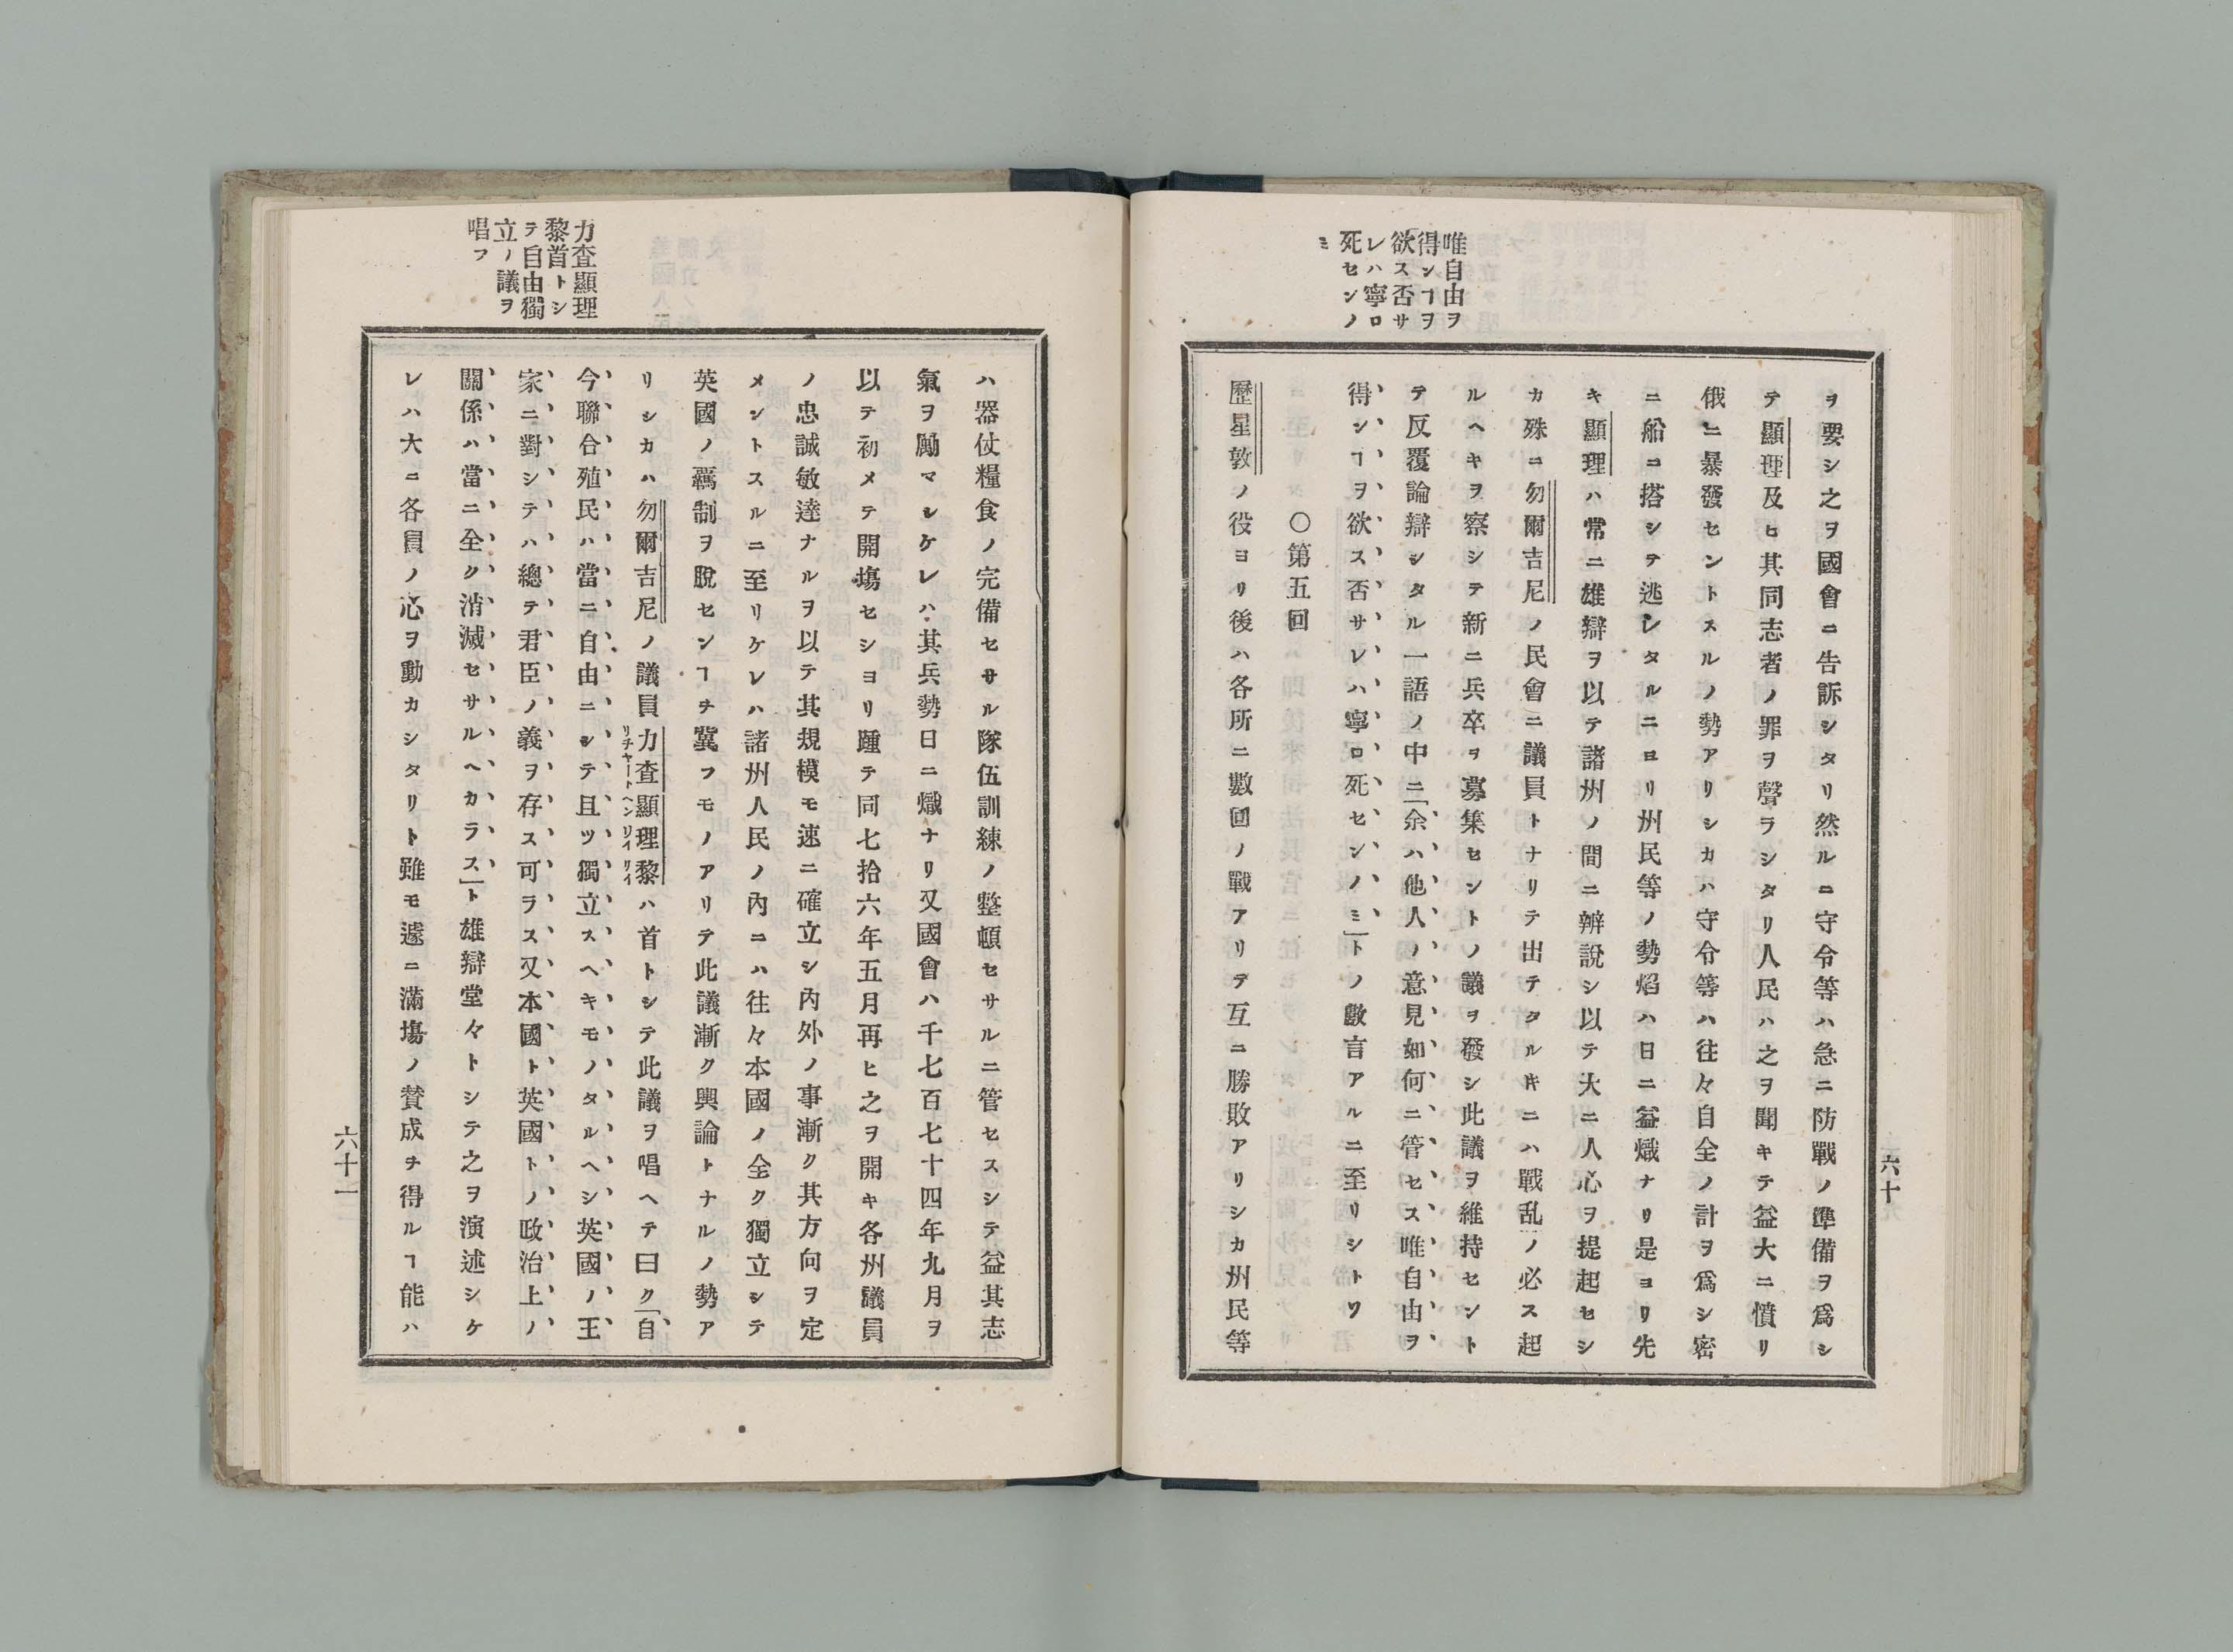 唯自由ヲ
得ンヿヲ
欲ス否サ
レハ寧ロ
死センノ
ミ
ヲ要シ之ヲ國會ニ告訴シタリ然ルニ守令等ハ急ニ防戰ノ準備ヲ爲シ
テ顯理及ヒ其同志者ノ罪ヲ聲ラシタリ人民ハ之ヲ聞キテ益大ニ憤リ
俄ニ暴發セントスルノ勢アリシカハ守令等ハ往々自全ノ計ヲ爲シ密
ニ船ニ搭シテ逃レタルニヨリ州民等ノ勢焰ハ日ニ益熾ナリ是ヨリ先
キ顯理ハ常ニ雄辯ヲ以テ諸州ノ間ニ辨說シ以テ大ニ人心ヲ提起セシ
カ殊ニ勿爾吉尼ノ民會ニ議員トナリテ出テタルキニハ戰乱ノ必ス起
ルヘキヲ察シテ新ニ兵卒ヲ募集セントノ議ヲ發シ此議ヲ維持セント
テ反覆論辯シタル一語ノ中ニ「余ハ他人ノ意見如何ニ管セス唯自由ヲ
得ンヿヲ欲ス否サレハ寧ロ死センノミ」トノ數言アルニ至リシトソ
〇第五回
歷星敦ノ役ヨリ後ハ各所ニ數回ノ戰アリテ互ニ勝敗アリシカ州民等
六十
力査顯理
黎首トシ
テ自由獨
立ノ議ヲ
唱フ
ハ器仗糧食ノ完備セサル隊伍訓練ノ整頓セサルニ管セスシテ益其志
氣ヲ勵マシケレハ其兵勢日ニ熾ナリ又國會ハ千七百七十四年九月ヲ
以テ初メテ開塲セシヨリ踵テ同七拾六年五月再ヒ之ヲ開キ各州議員
ノ忠誠敏達ナルヲ以テ其規模モ速ニ確立シ內外ノ事漸ク其方向ヲ定
メントスルニ至リケレハ諸州人民ノ內ニハ往々本國ノ全ク獨立シテ
英國ノ羈制ヲ脫センヿヲ冀フモノアリテ此議漸ク輿論トナルノ勢ア
リシカハ勿爾吉尼ノ議員力査顯理黎ハ首トシテ此議ヲ唱ヘテ曰ク「自
リチヤートヘンリイリイ
今聯合殖民ハ當ニ自由ニシテ且ツ獨立スヘキモノタルヘシ英國ノ王
家ニ對シテハ總テ君臣ノ義ヲ存ス可ラス又本國ト英國トノ政治上ノ
關係ハ當ニ全ク消滅セサルヘカラス」ト雄辯堂々トシテ之ヲ演述シケ
レハ大ニ各員ノ心ヲ動カシタリト雖モ遽ニ滿塲ノ賛成ヲ得ルヿ能ハ
六十一